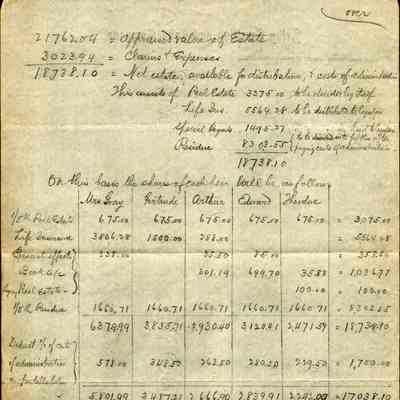 over
21762.04 = Appraised value of Estate
3023.94 = Claims & Expenses
18738.10 = Net estate, available for distribution, & costs of administration
This consists of Real Estate 3375.00 to be divided by itself
Life Ins. 5564.28 to be distributed
Special 1495.27
Residue 8303.55 paying costs of administration
18738.10
On this basis the share of each heir will be as follows
Mrs Gray Gertrude Arthur Edward Theodore
1/5th Real Estate 675.00 675.00 675.00 675.00 675.00 = 3375.00
Life Insurance 3806.28 1500.00 258.00 = 5564.28
effects 238.00 85.00
Book a/c 201.19 699.70 35.88
Real Estate 100.00 = 100.00
1/5th Residue 1660.71 1660.71 1660.71 1660.71 1660.71 = 8303.55
6379.99 3835.71 2930.40 3120.41 2471.59 = 18,738.10
Deduct % of cost
of administration 578.00 348.50 262.50 280.50 229.50 = 1,700.00
5801.99 3487.21 2666.90 2839.91 2242.09 = 17038.10